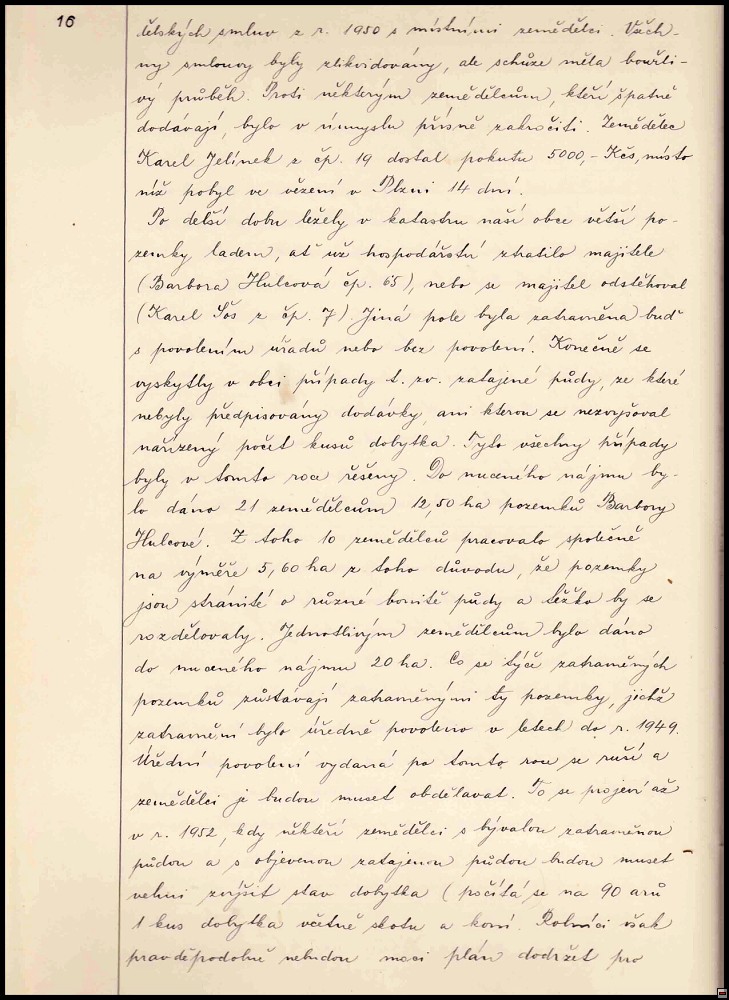 16
dělských smluv z r. 1950 s místními zemědělci. Všech-
ny smlouvy byly zlikvidovány, ale schůze měla bouřli-
vý průběh. Proti některým zemědělcům, kteří špatně
dodávají, bylo v úmyslu přísně zakročiti. Zemědělec
Karel Jelínek z čp. 19 dostal pokutu 5000,- Kčs, místo
níž pobyl ve vězení v Plzni 14 dní.
Po delší dobu ležely v katastru naší obce větší po-
zemky ladem, ať už hospodářství ztratilo majitele
(Barbora Hulcová čp. 65), nebo se majitel odstěhoval
(Karel Šos z čp. 7). Jiná pole byla zatravněna buď
s povolením úřadů nebo bez povolení. Konečně se
vyskytly v obci případy t. zv. zatajené půdy, ze které
nebyly předpisovány dodávky, ani kterou se nezvyšoval
nařízený počet kusů dobytka. Tyto všechny případy
byly v tomto roce řešeny. Do nuceného nájmu by-
lo dáno 21 zemědělcům 12,50 ha pozemků Barbory
Hulcové. Z toho 10 zemědělců pracovalo společně
na výměře 5,60 ha z toho důvodu, že pozemky
jsou stránité o různé bonitě půdy a těžko by se
rozdělovaly. Jednotlivým zemědělcům bylo dáno
do nuceného nájmu 20 ha. Co se týče zatravněných
pozemků zůstávají zatravněnými ty pozemky, jichž
zatravnění bylo úředně povoleno v letech do r. 1949.
Úřední povolení vydaná po tomto roce se ruší a
zemědělci je budou muset obdělávat. To se projeví až
v r. 1952, kdy někteří zemědělci s bývalou zatravněnou
půdou a s objevenou zatajenou půdou budou muset
velmi zvýšit stav dobytka (počítá se na 90 arů
1 kus dobytka včetně skotu a koní. Rolníci však
pravděpodobně nebudou moci plán dodržet pro